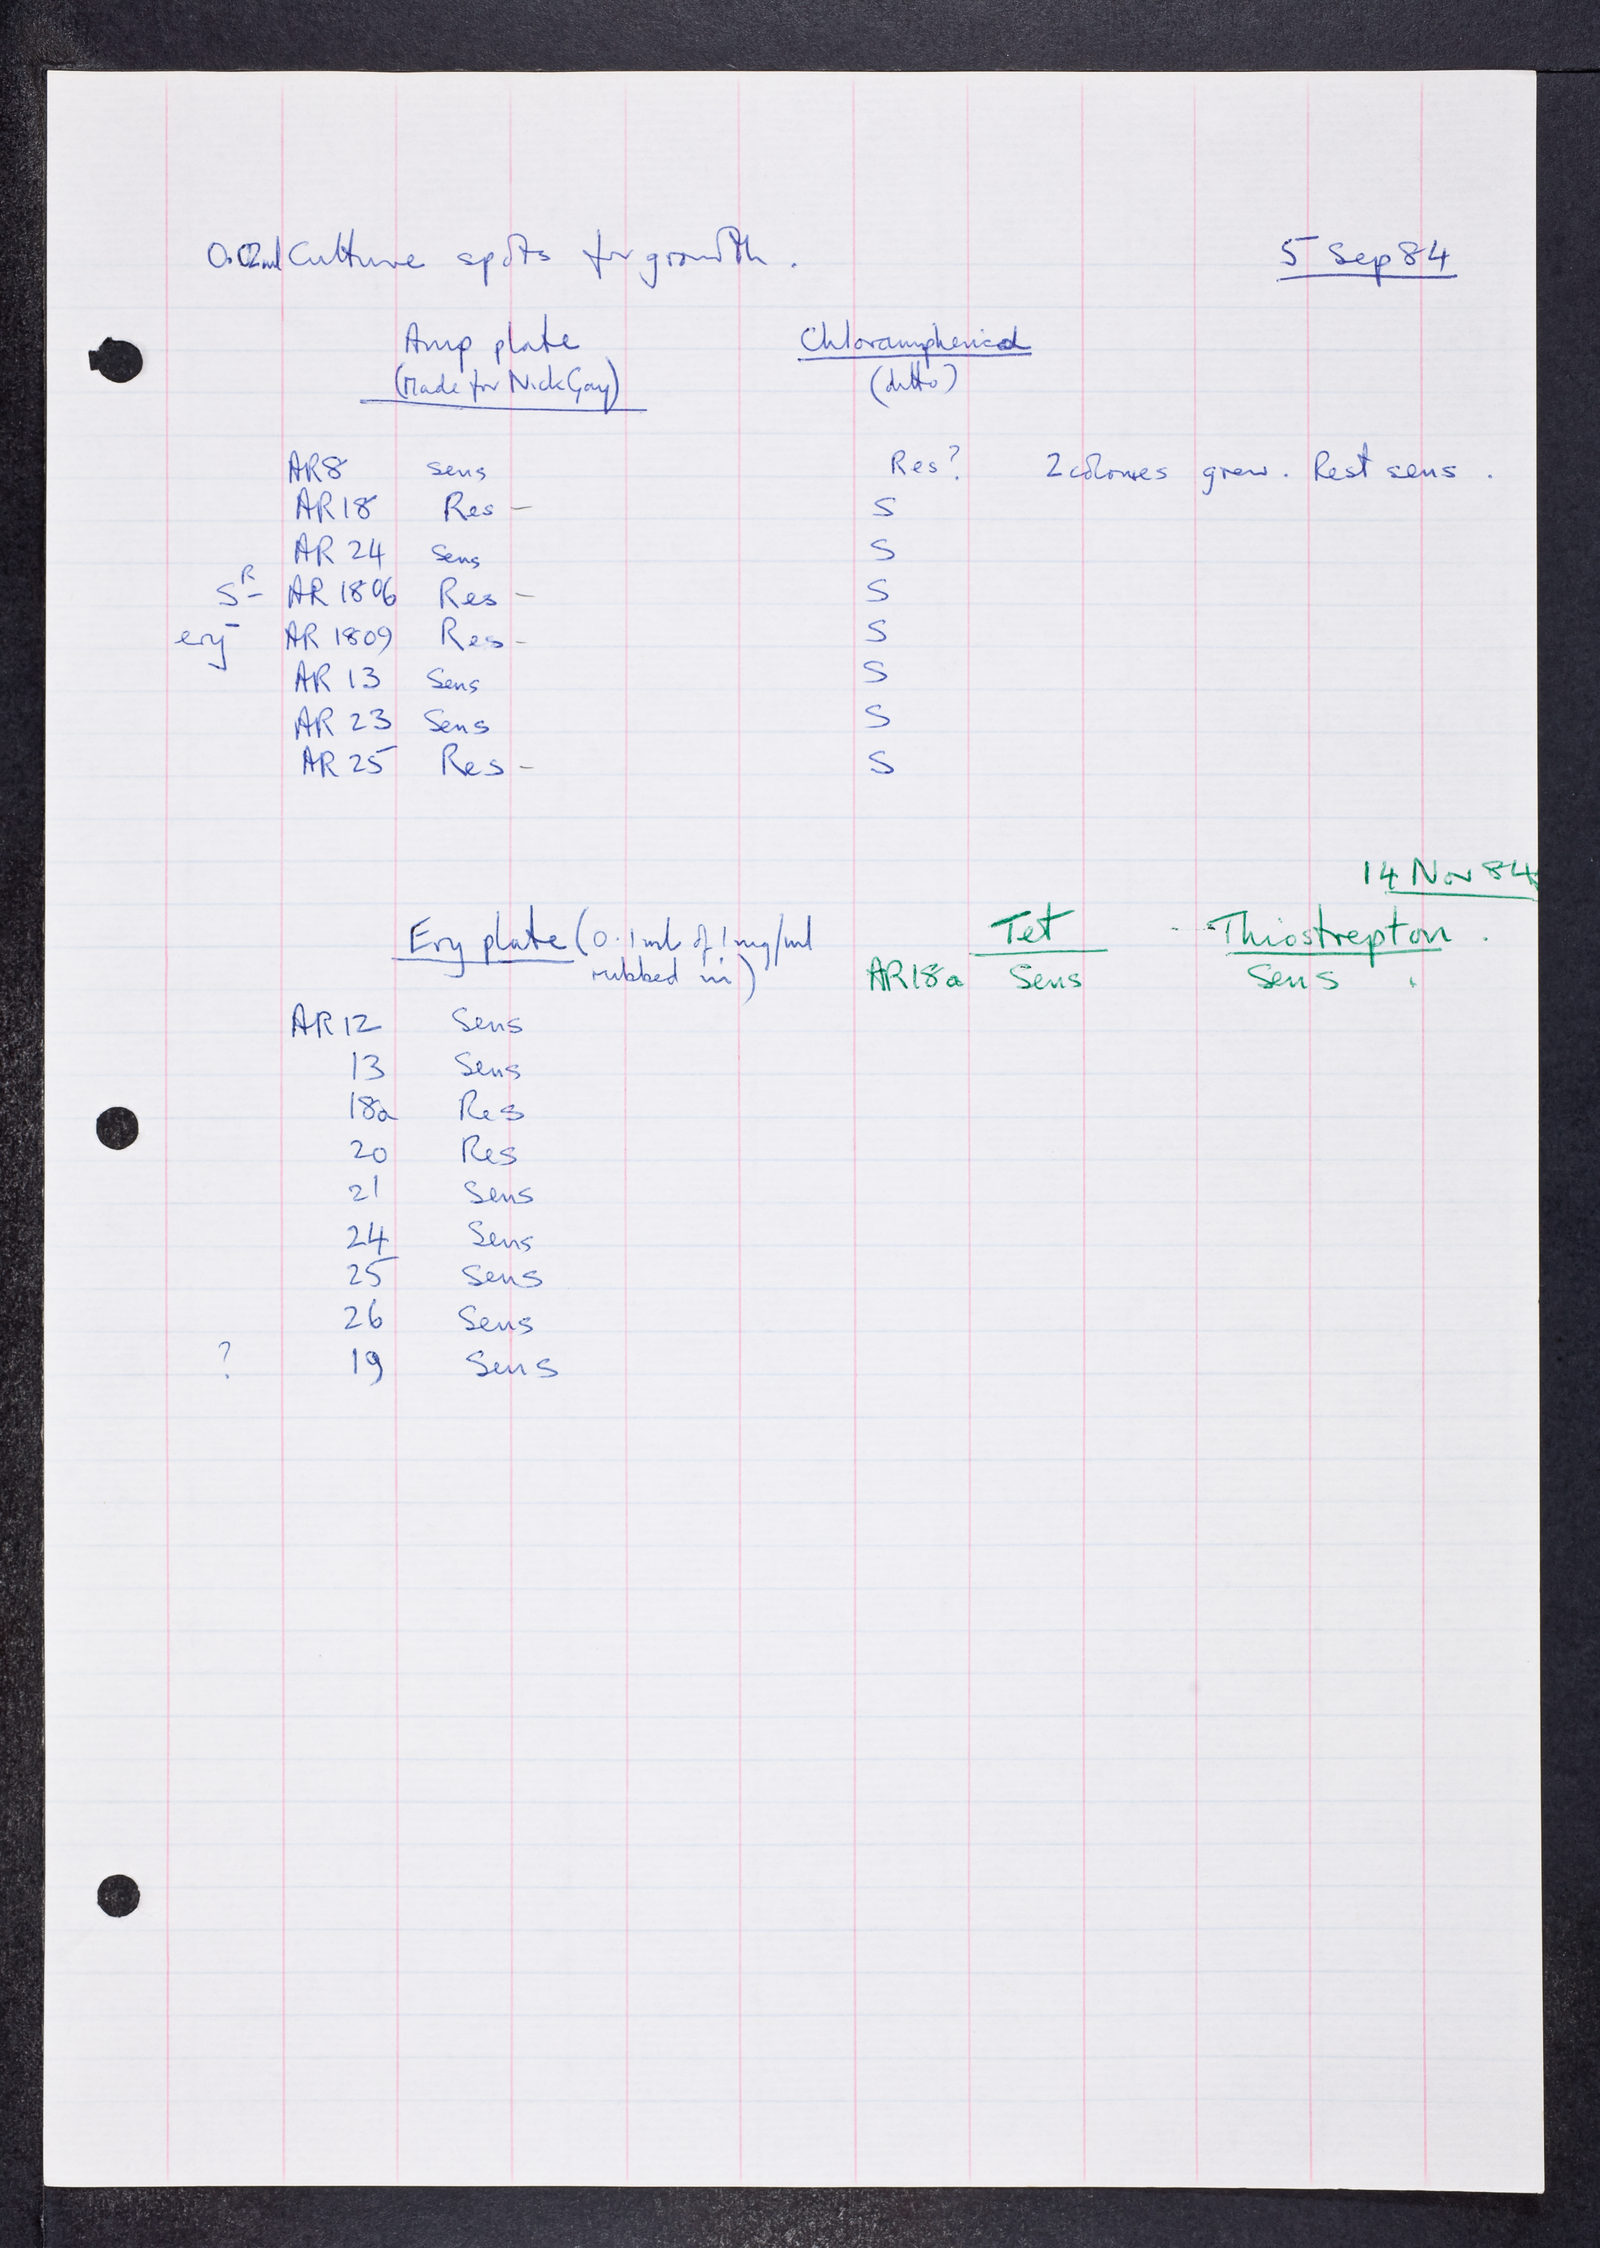 0.02ml Culture spots for growth. 5 Sep 84
Amp plate Chloramphenicol
(Made for Nick Gay) (ditto)
AR8 Sens Res? 2 colonies grew. Rest sens.
AR18 Res – S
AR 24 Sens S
S^R – AR 1806 Res – S
ery – AR 1809 Res – S
AR 13 Sens S
AR 23 Sens S
AR 25 Res – S
14 Nov 84
Ery plate (0.1ml of 1mg/ml Tet Thiostrepton.
rubbed in) AR18a Sens Sens
AR12 Sens
13 Sens
18a Res
20 Res
21 Sens
24 Sens
25 Sens
26 Sens
? 19 Sens